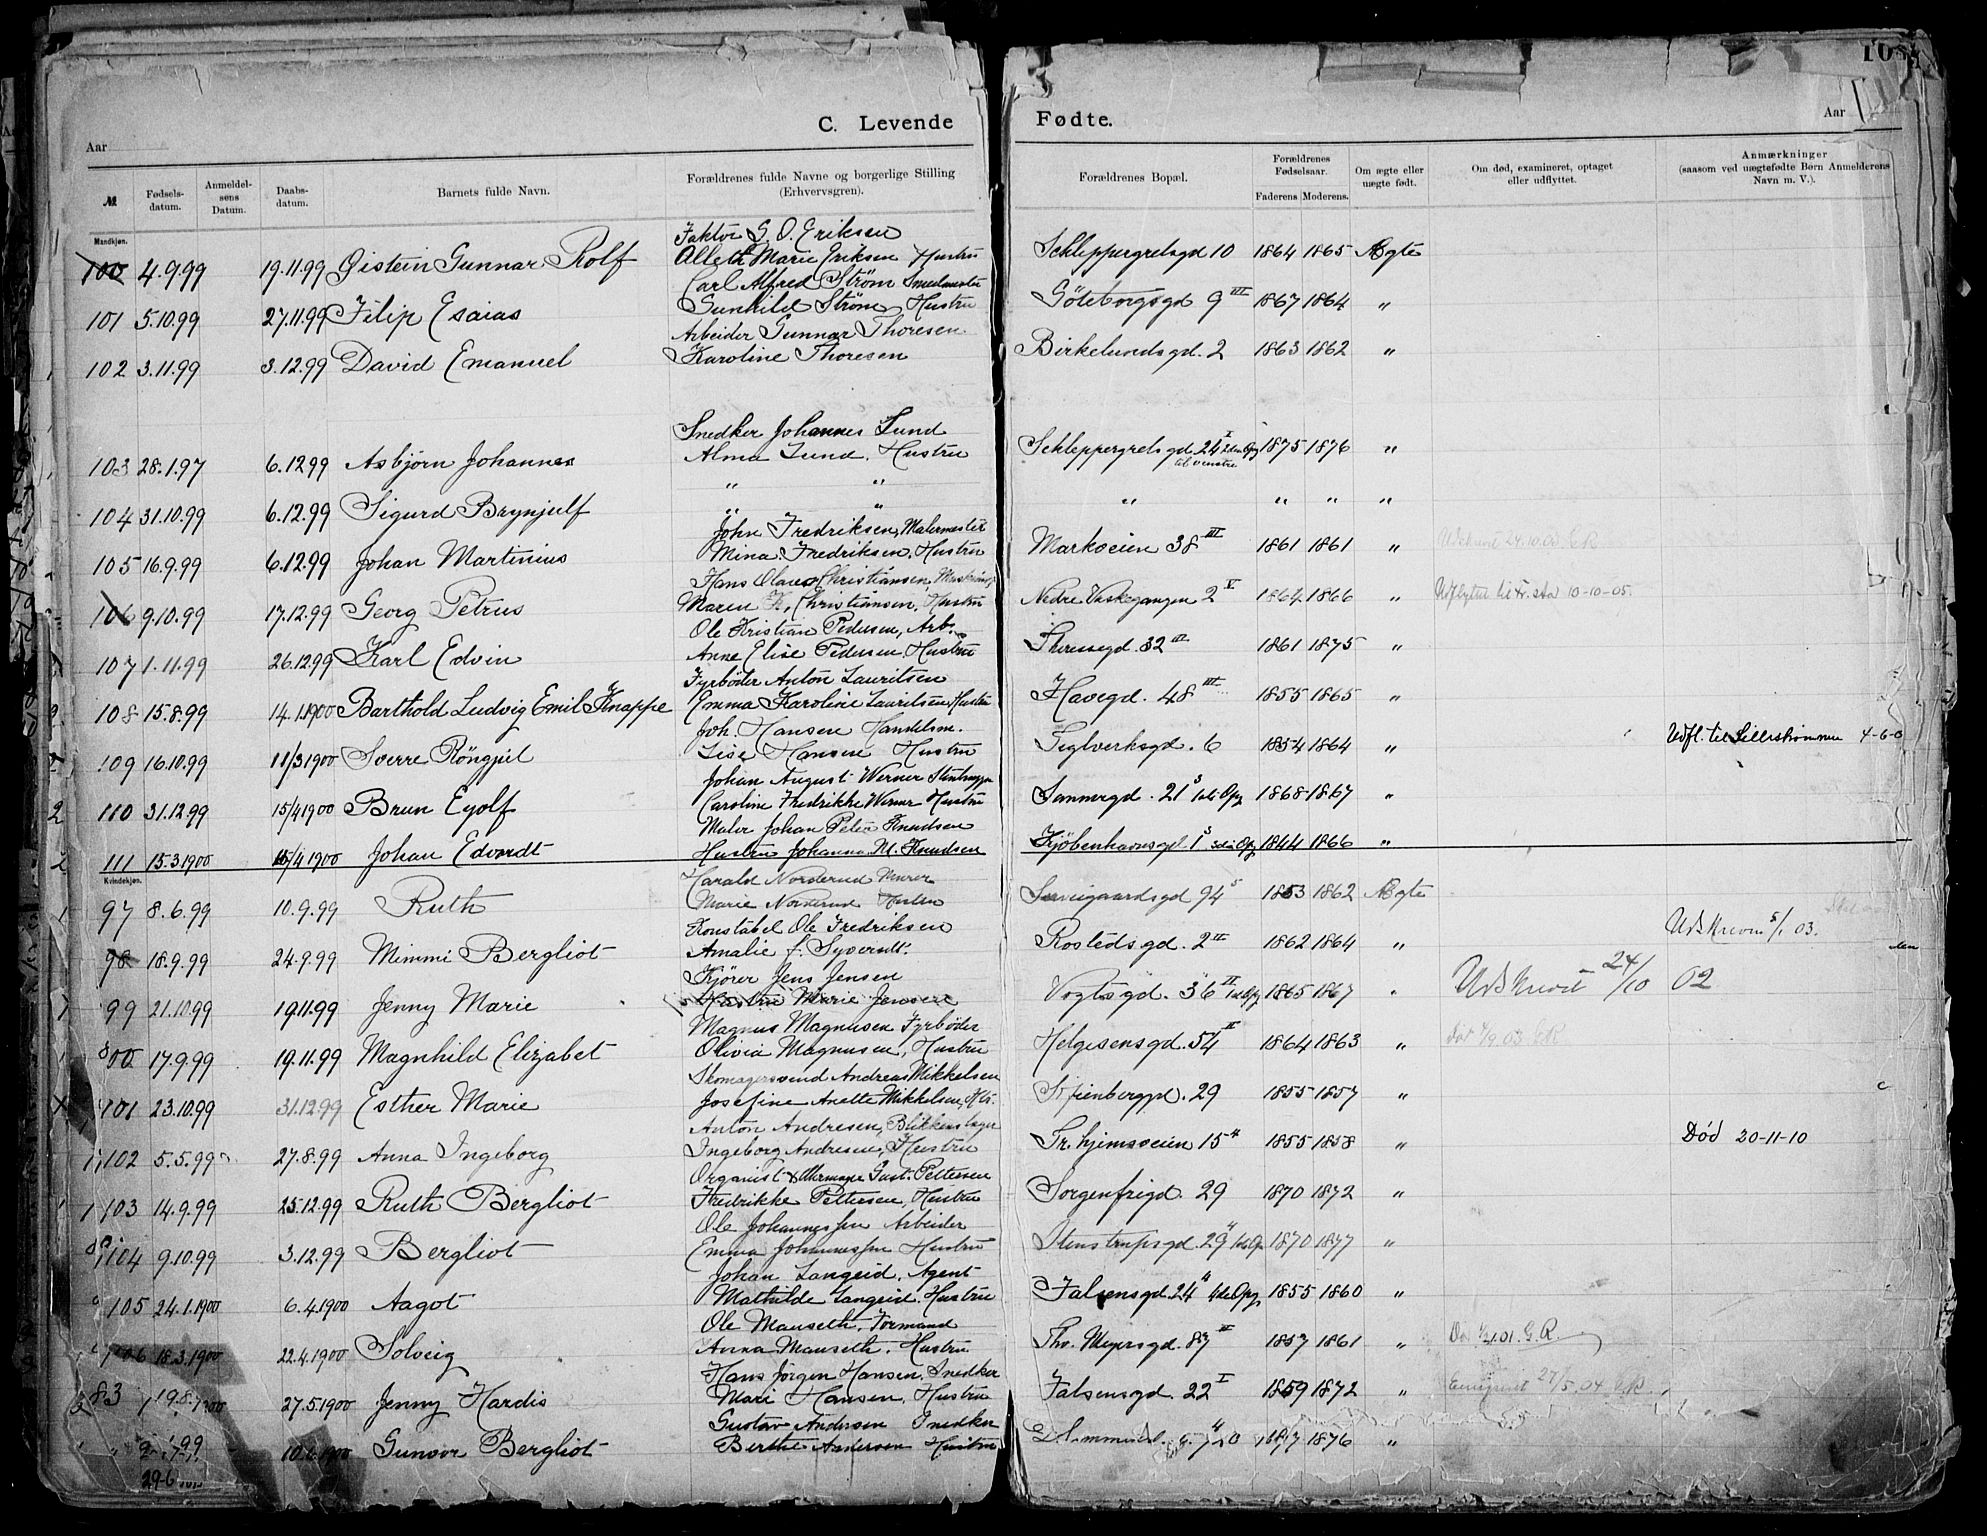 108
C. Levende Fødte.
Aar Aar
№ Fødsels-datum. Anmeldel-sens Datum. Daabs-datum. Barnets fulde Navn. Forældrenes fulde Navne og borgerlige Stilling (Erhvervsgren). Forældrenes Bopæl. Forældrenes Fødselsaar. Faderens Moderens. Om ægte eller uægte født. Om død, examineret, optaget eller udflyttet. Anmærkninger (saasom ved uægtefødte Børn Anmelderens Navn m. V.).
Mandkjøn.
Faktor G. O. Eriksen
100 4.9.99 19.11.99 Øistein Gunnar Rolf Alleth Marie Eriksen Hustru Schleppergrelsgd 10 1864 1865 Ægte
Carl Alfred Strøm Smedmester
101 5.10.99 27.11.99 Filip Esaias Gunhild Strøm, Hustru Göteborgsgd 9 III 1867 1864 "
Arbeider Gunnar Thoresen
102 3.11.99 3.12.99 David Emanuel Karoline Thoresen Birkelundsgd. 2 1863 1862 "
Snedker Johannes Lund
103 28.1.97 6.12.99 Asbjørn Johannes Alma Lund, Hustru Schleppergrelsgd 24 I 2den Opg til venstre 1875 1876 "
" "
104 31.10.99 6.12.99 Sigurd Brynjulf " " " " " "
John Fredriksen, Malermester
105 16.9.99 6.12.99 Johan Martinius Mina Fredriksen, Hustru Markveien 38 III 1861 1861 " Udskrevet 24.10.03
Hans Olaves Christiansen
106 9.10.99 17.12.99 Georg Petrus Maren K. Christiansen, Hustru Nedre Vaskegangen 2 V 1864 1866 " Udflyttet til Fr.stad 10-10-05.
Ole Kristian Pedersen, Arb.
107 1.11.99 26.12.99 Karl Edvin Anne Elise Pedersen, Hustru Theresegd. 32 III 1861 1875 "
Fyrbøder Anton Lauritsen
108 15.8.99 14.1.1900 Barthold Ludvig Emil Knappe Emma Karoline Lauritsen, Hustru Havegd. 48 III 1855 1865 "
Joh. Hansen Handelsm.
109 16.10.99 11/3 1900 Sverre Röngjil Lise Hansen Hustru Teglverksgd. 6 1854 1864 " Udfl. til Lillestrømmen 4-6-0
Johan August Werner Stenhugger
110 31.12.99 15/4 1900 Brun Eyolf Caroline Fredrikke Werner Hustru Sannergd. 21 1ste Opg 1868 1867 "
Maler Johan Peter Knudsen
111 15.3.1900 15/4 1900 Johan Edvardt Hustru Johanna M. Knudsen Kjöbenhavnsgd 1 3die Opg 1844 1866 "
Kvindekjøn.
Harald Norderud Murer
97 8.6.99 10.9.99 Ruth Marie Norderud Hustru Seilduksgd 94 1863 1862 Ægte
Konstabel Ole Fredriksen
98 18.9.99 24.9.99 Mimmi Bergliot Amalie f. Syverdt. Rostedsgd. 2 II 1862 1864 " Udskreven 5/1 03.
Kjører Jens Jensen
99 21.10.99 19.11.99 Jenny Marie Hustru Marie Jensen Vogtsgd. 36 II 1ste Opg 1865 1867 " Udskrevet 24/10 02
Magnus Magnusen Fyrbøder
100 17.9.99 19.11.99 Magnhild Elizabet Olivia Magnusen, Hustru Helgesensgd. 54 II 1864 1863 "
Skomagersvend Andreas Mikkelsen
101 23.10.99 31.12.99 Esther Marie Josefine Anette Mikkelsen, Hts. Sofienbergpl. 29 1855 1857 "
Anton Andresen, Blikkenslager
102 5.5.99 27.8.99 Anna Ingeborg Ingeborg Andresen, Hustru Tr.hjemsveien 15 1855 1858 " Død 20-11-10
Organist & Uhrmager Gust. Pettersen
103 14.9.99 25.12.99 Ruth Bergliot Fredrikke Pettersen, Hustru Sorgenfrigd. 29 1870 1872 "
Ole Johannessen Arbeider
104 9.10.99 3.12.99 Bergliot Emma Johannessen Hustru Stenstrupsgd. 29 1870 1877 "
Johan Langeid, Agent
105 24.1.1900 6.4.1900 Aagot Mathilde Langeid, Hustru Falsensgd. 24 4de Opg 1855 1860 "
Ole Mauseth, Formand
106 18.3.1900 22.4.1900 Solveig Anna Mauseth, Hustru Thv. Meyersgd. 87 II 1857 1861 "
Hans Jörgen Hansen, Snedker
27.5.1900 Jenny Hardis Mari Hansen, Hustru Falsensgd. 22 I 1869 1872 " Emigreret 27/5.04
Gustav Andersen Snedker
Gunvor Bergliot Berthe Andersen Hustru 1876 "
29-6